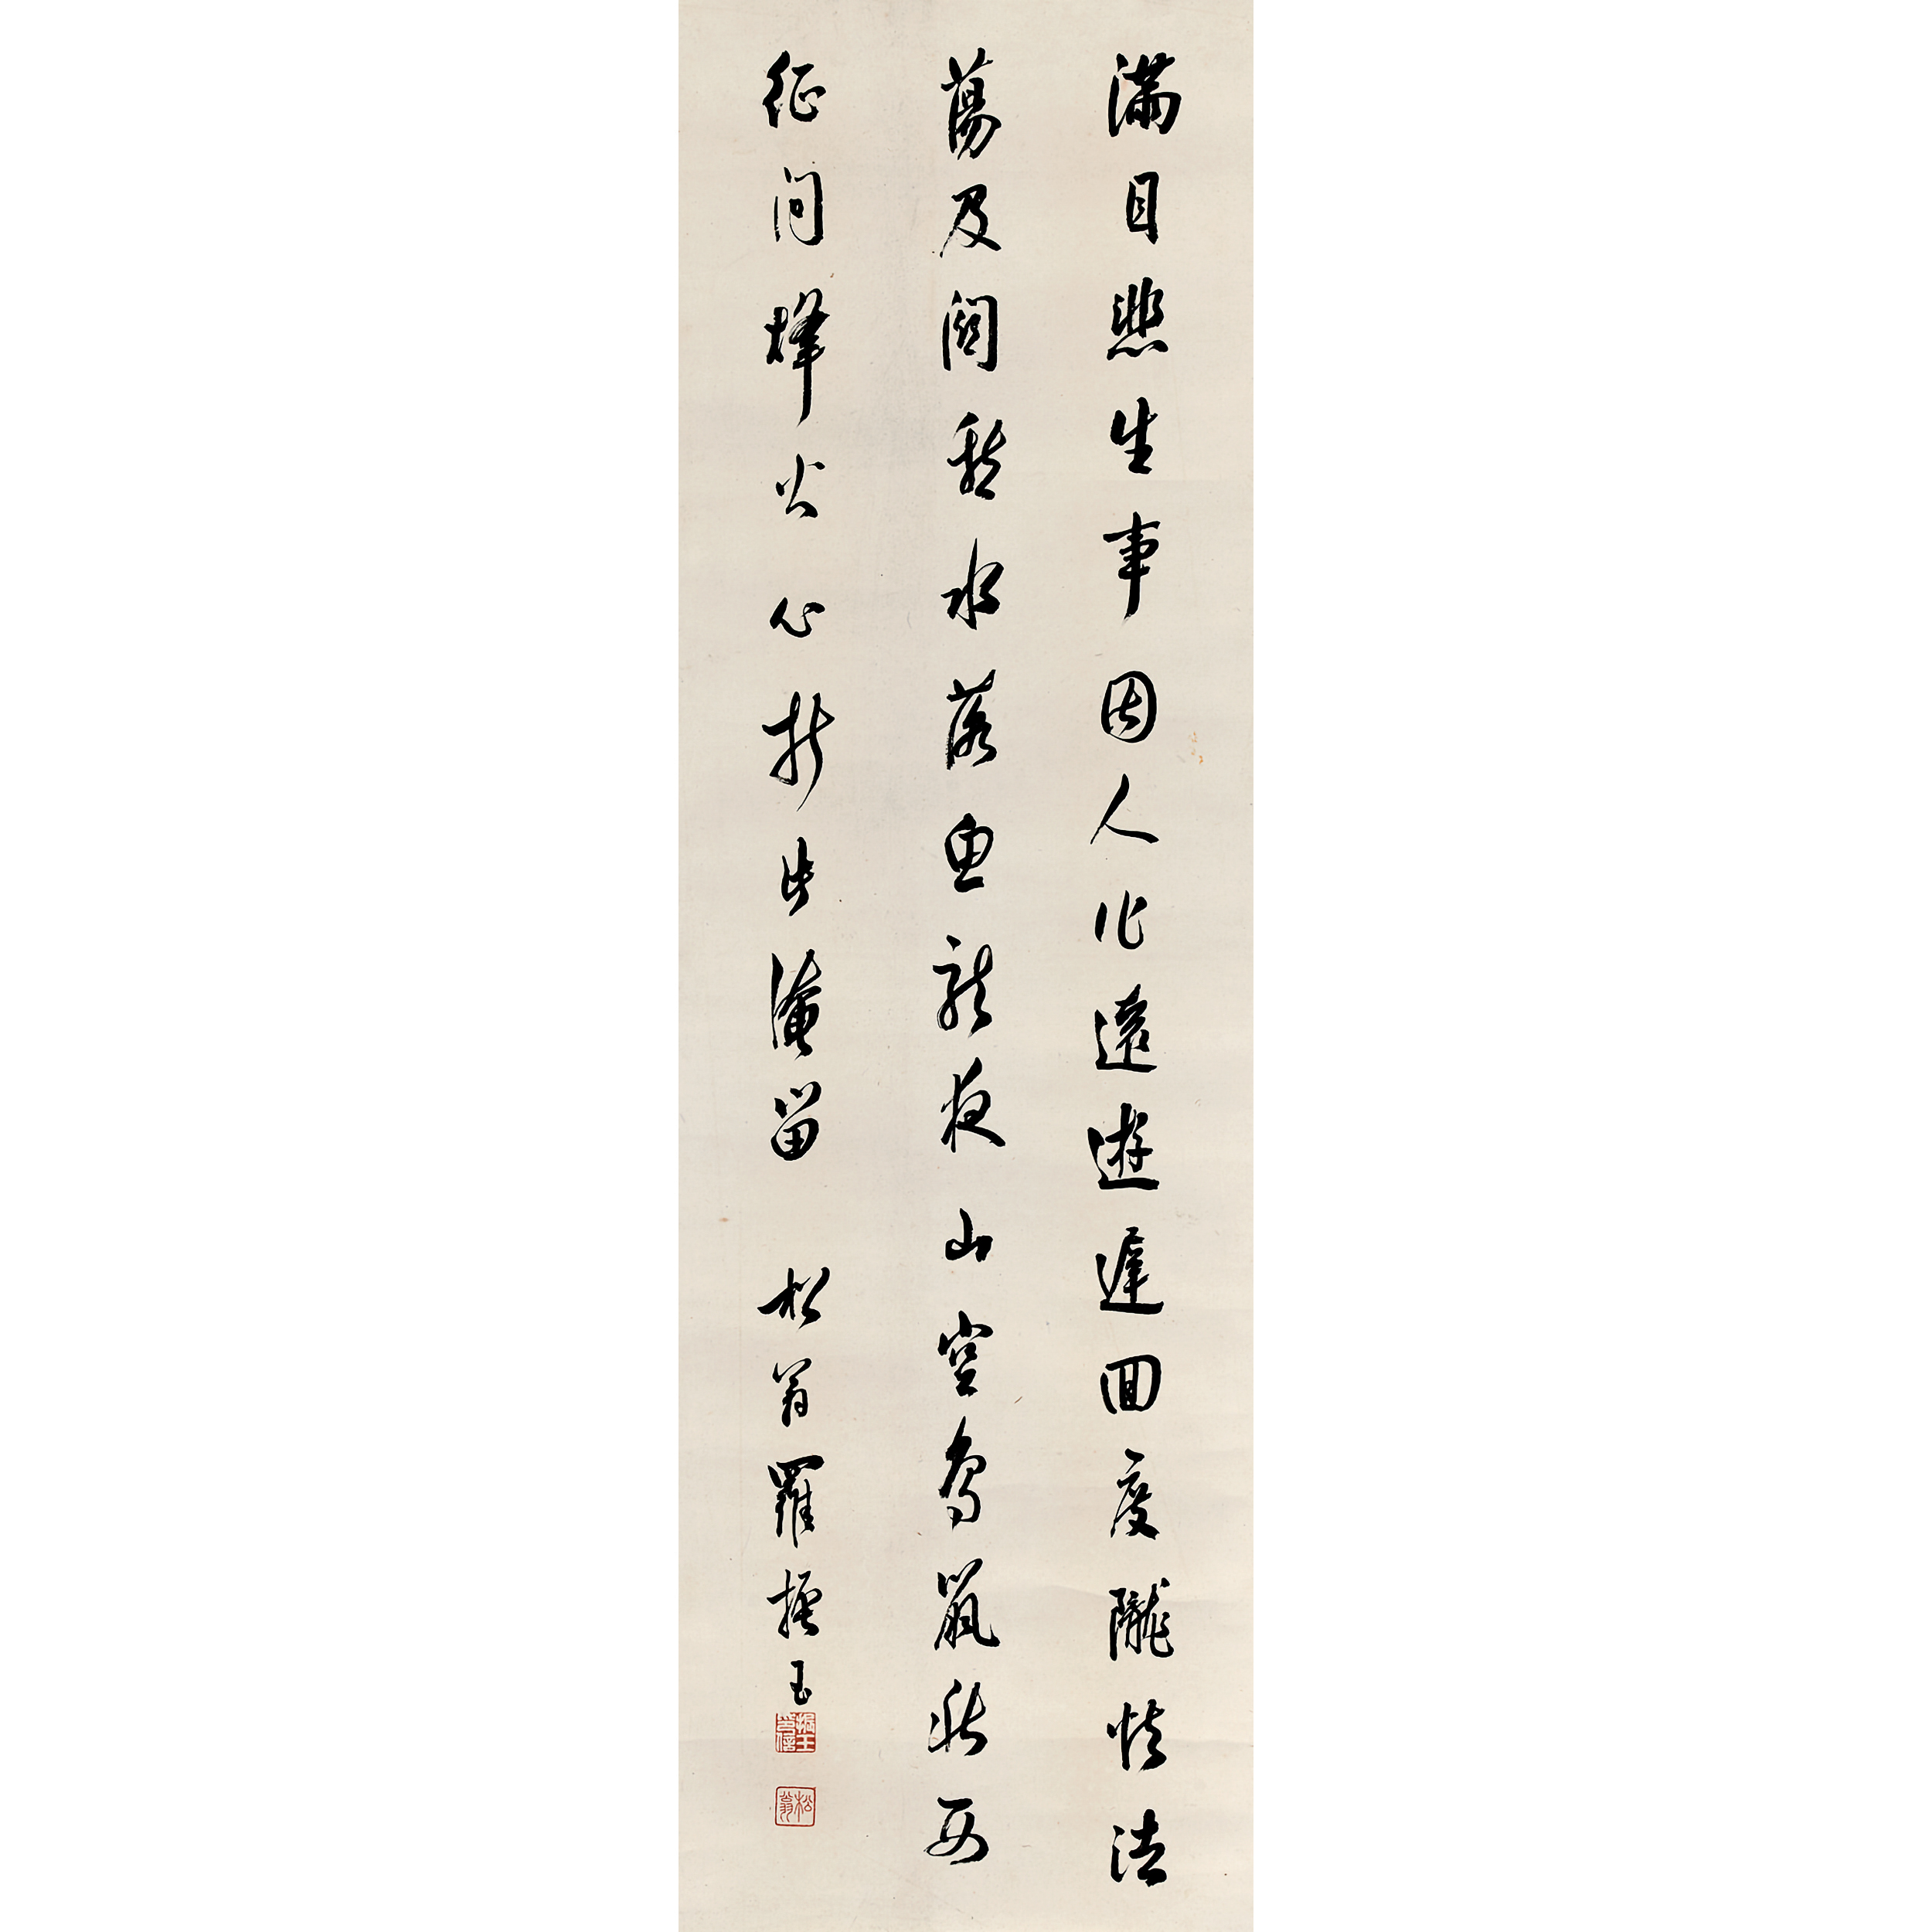 滿目悲生事因人作遠遊遲回度隴怯浩
蕩及關愁水落魚龍夜山空鳥鼠秋西
征問烽火心折此淹留 松翁羅振玉
振玉印信
松翁